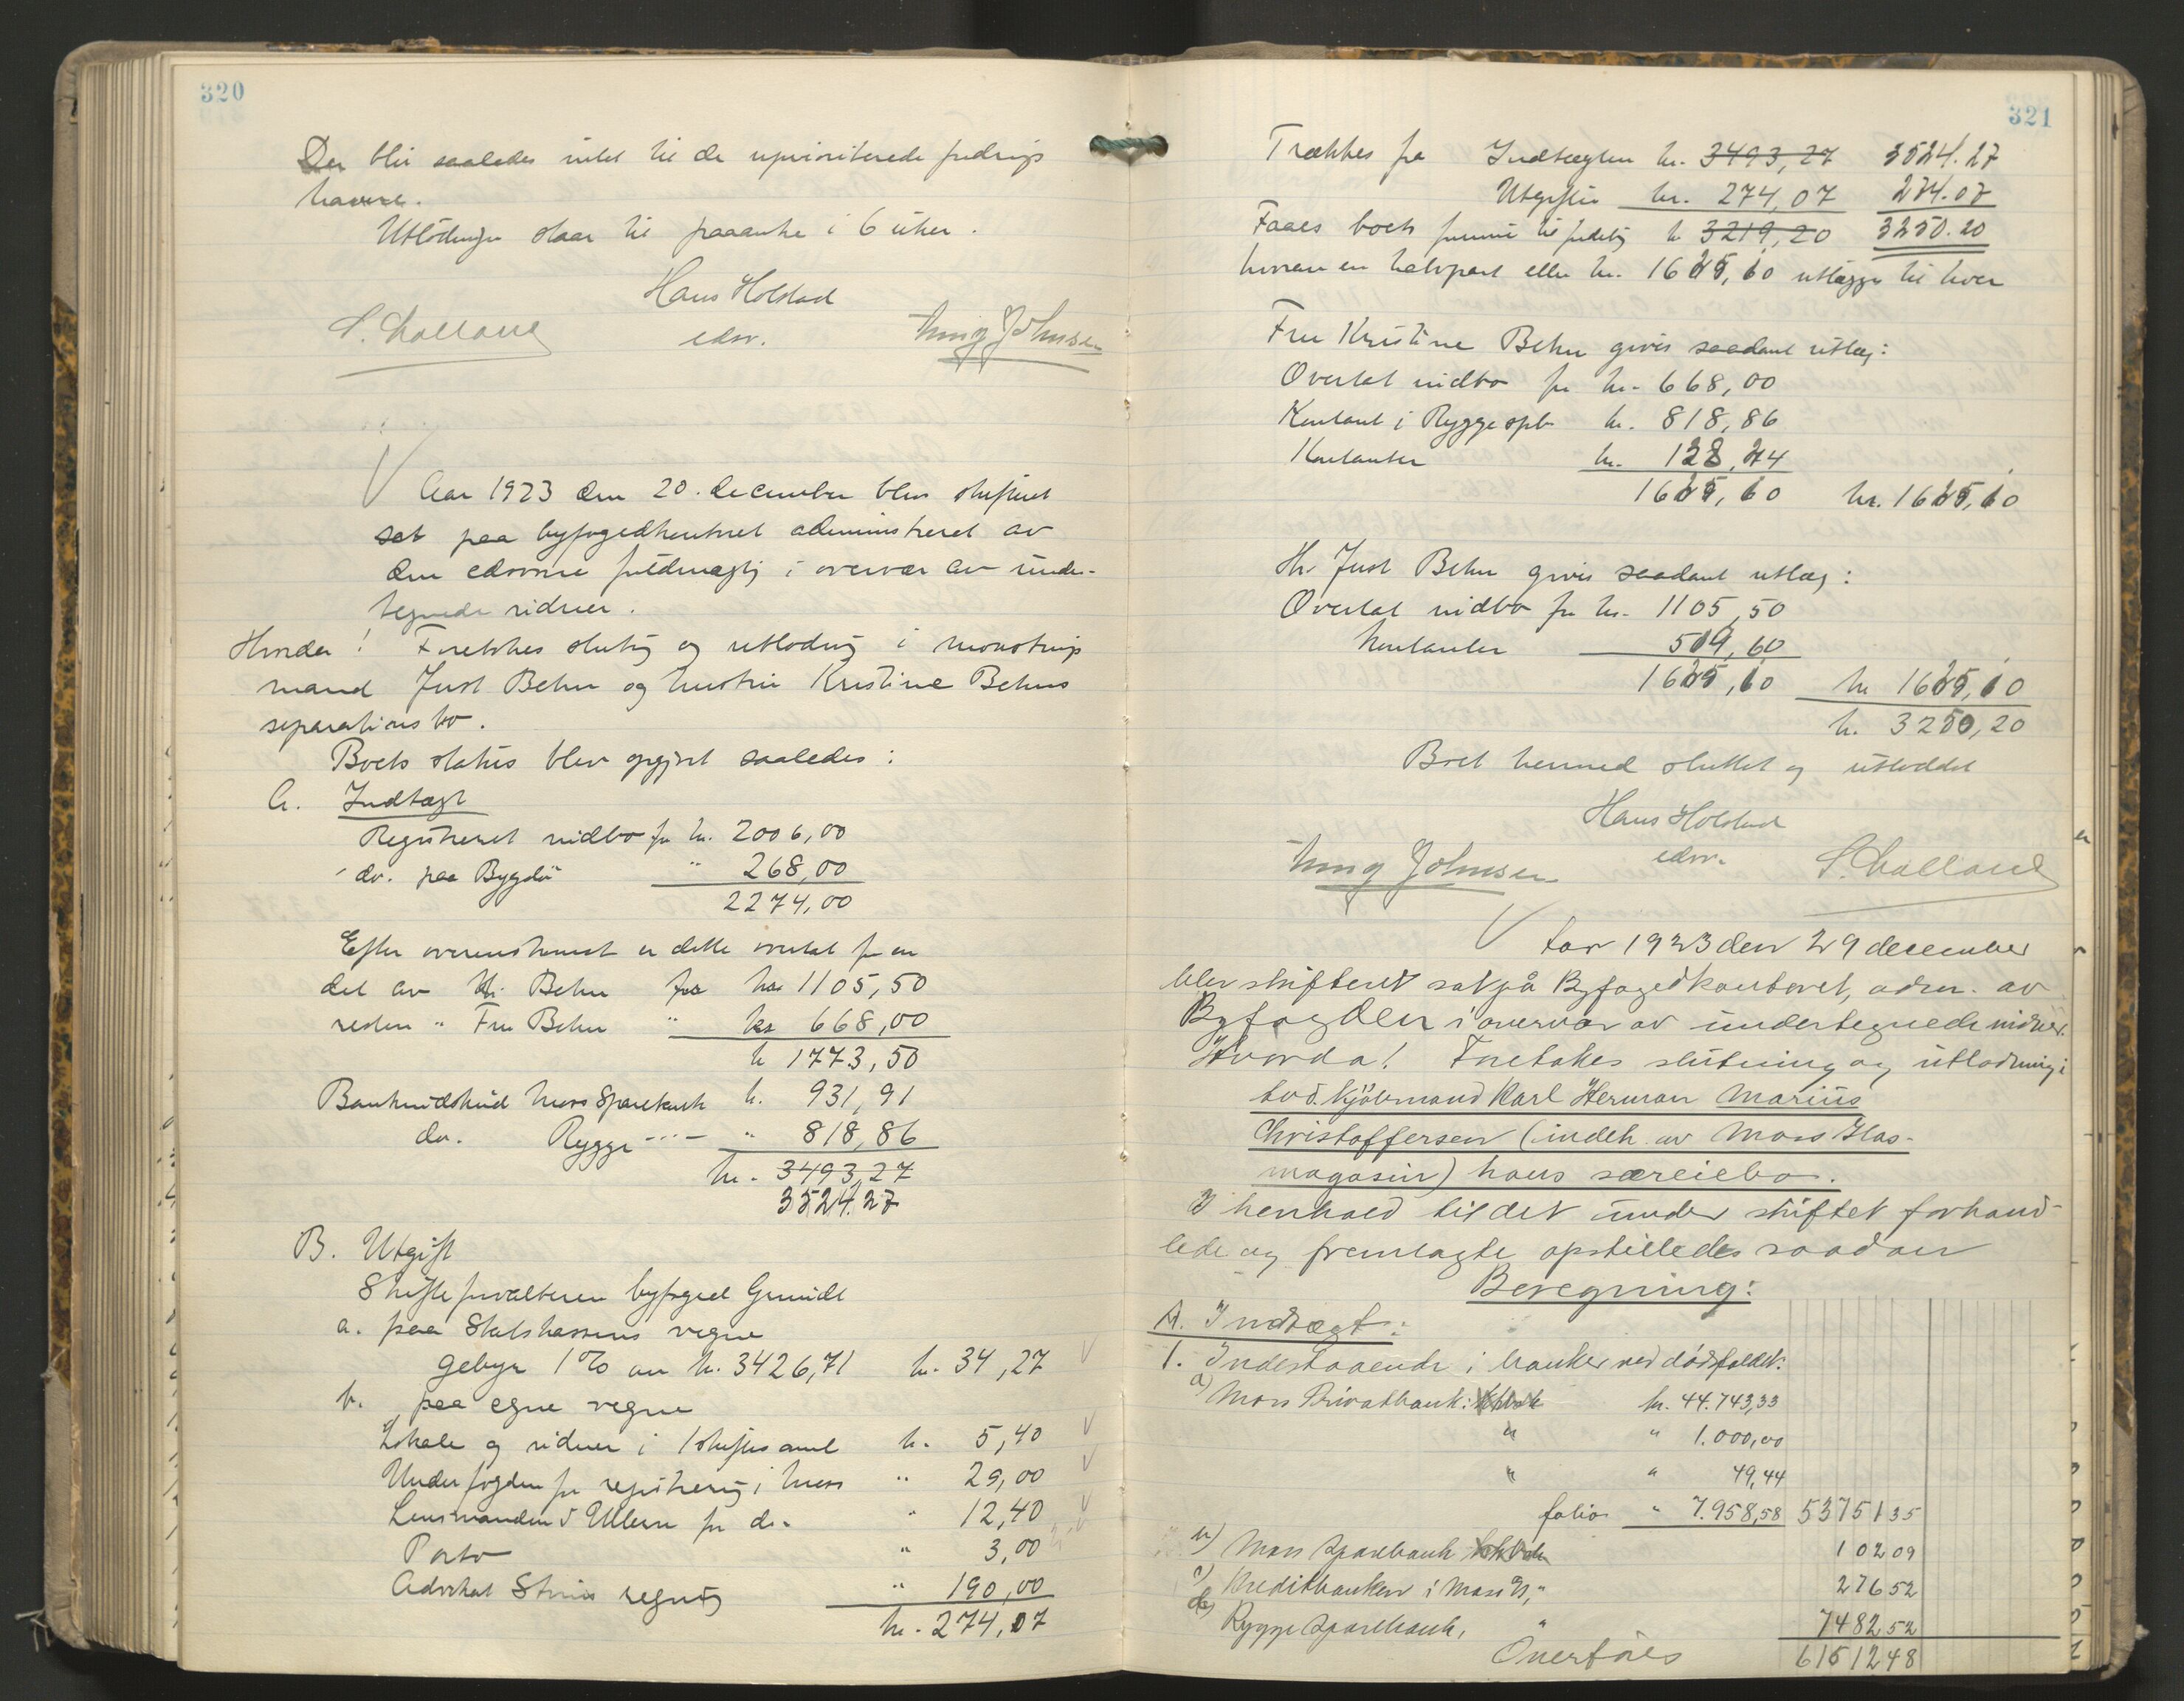 320
Der blir saaledes intet til de uprioriterede fordrings
havere.
Utlodningen staar til paaanke i 6 uker.
Hans Holstad
edsv.
S. Molland
Ming Johnsen
Aar 1923 den 20. december blev skifteret
sat paa byfogedkontoret administreret av
den edsvorne fuldmægtig i overvær av under-
tegnede vidner.
Hvorda! Foretokes slutning og utlodning i
mand Just Behn og hustru Kristine Behns
separationsbo.
Boets status blev opgjort saaledes:
A. Indtægt
Registreret indbo for kr. 2006,00
do. paa Bygdö " 268,00
2274,00
Efter overenskomst er dette overtat for en
del av Hr. Behn for kr 1105,50
resten " Fru Behn " kr 668,00
kr 1773,50
Bankindskud Moss Sparebank kr. 931,91
do. Rygge -"- " 818,86
kr. 3493,27
3524.27
B. Utgift
Skifteforvalteren byfoged Grundt
a. paa Statskassens vegne
gebyr 1% av kr. 3426,71 kr. 34,27
b. paa egne vegne
Lokale og vidner i 1 skiftesaml kr. 5,40
Underfogden for registrering i Moss " 29,00
Lensmanden i Ullern for do. " 12,40
Porto " 3,00
Advokat regning " 190,00
kr. 274,07
321
Trækkes fra Indtægten kr. 3493,27 3524.27
Utgiften kr. 274,07 274.07
Faaes boets formue til fordeling kr 3219,20 3250.20
hvorav en halvpart eller kr. 1625,10 utlægges til hver
Fru Kristine Behn gives saadant utlæg:
Overtat indbo for kr. 668,00
Kontant i Rygge spb kr. 818,86
Kontanter kr. 138,24
1625,10 kr. 1625,10
Hr. Just Behn gives saadant utlæg:
Overtat indbo for kr. 1105,50
Kontanter 519,60
1625,10 kr 1625,10
kr. 3250,20
Boet hermed sluttet og utloddet
Hans Holstad
edsv.
Ming Johnsen
S. Molland
Aar 1923 den 29 december
blev skifteret sat på Byfogedkontoret, adm. av
Byfogden i overvær av undertegnede vidner.
Hvorda! Foretokes slutning og utlodning i
bod. kjöbmand Karl Herman Marius
Christoffersen (indeh. av Moss Glas-
magasin) hans særeiebo.
I henhold til det under skiftet forhand-
lede og fremlagte opstilledes saadan
Beregning:
A. Indtægt:
1. Indestaaende i banker ved dödsfaldet:
a) Moss Privatbank: kr. 44.743,33
" " 1.000,00
" " 49,44
folio " 7.958,58 53751 35
b) Moss Sparebank 102 09
c) Kreditbanken i Moss " 276 52
d) Rygge Sparebank, " 7482 52
Overföres 61512 48